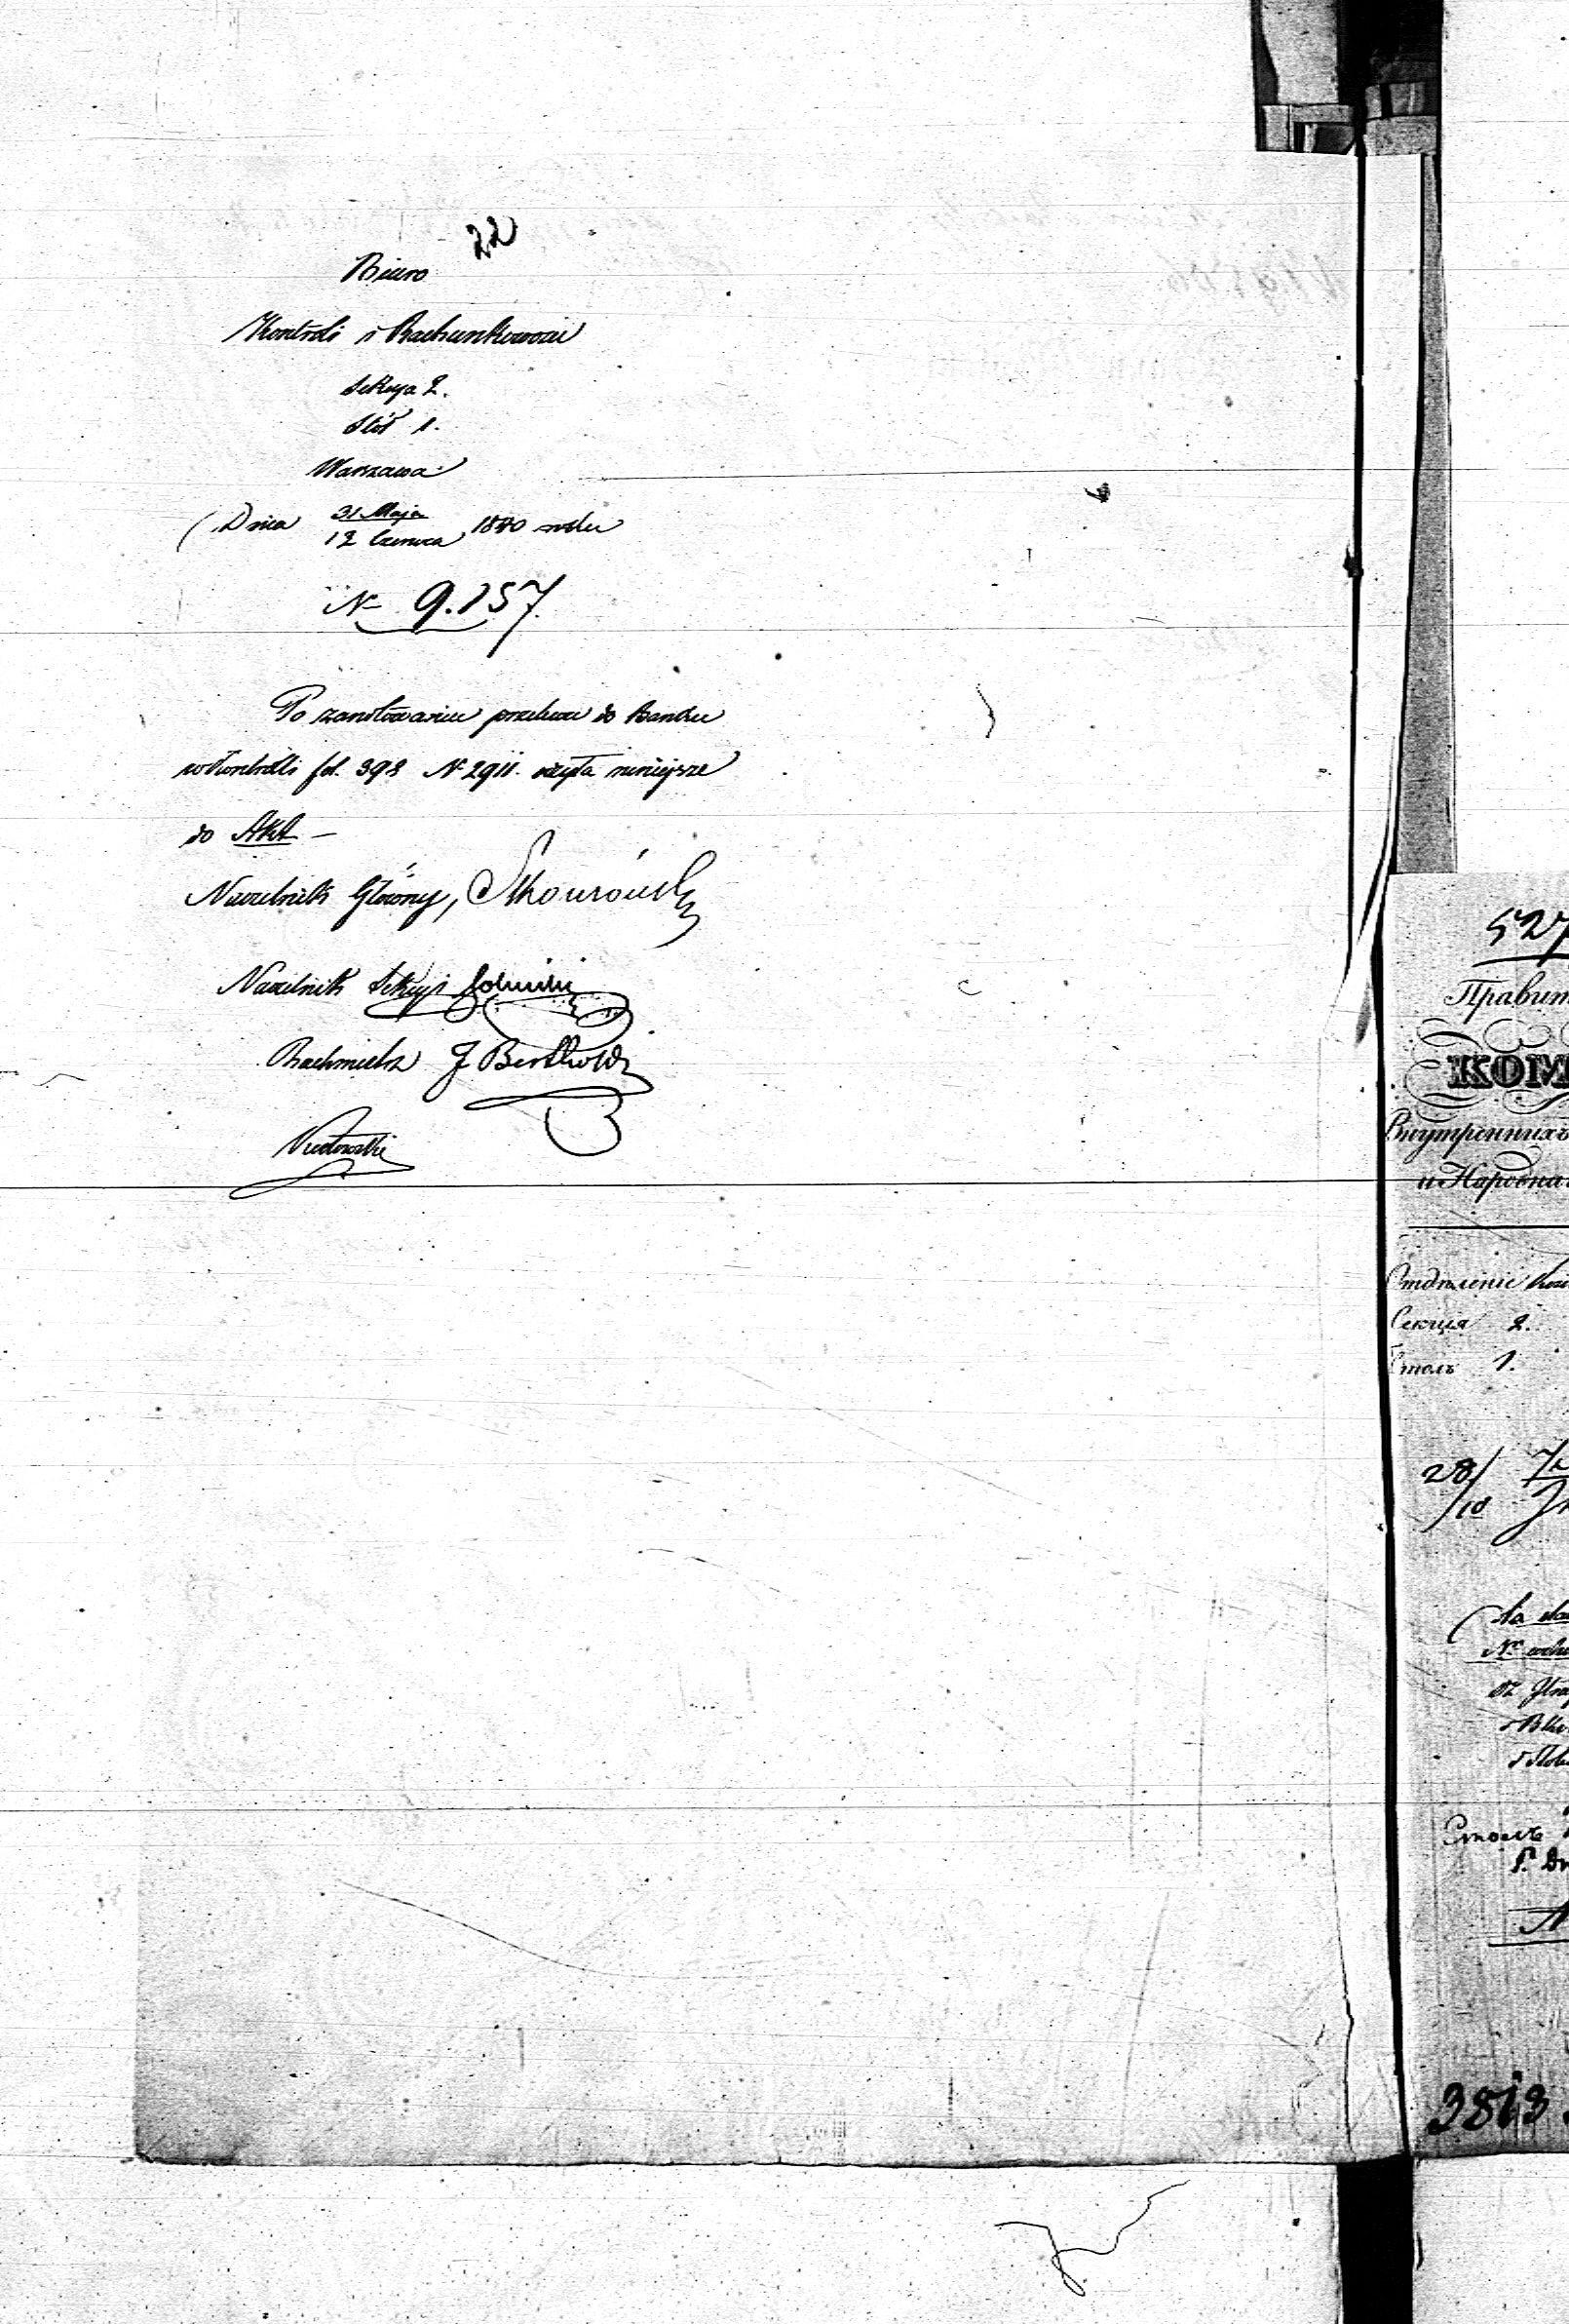 22
Biuro
Kontroli i Rachunkowości
Sekcya 2.
Stół 1.
Warszawa
Dnia 31 Maja
12 Czerwca 1840 roku
N 9.157.
Po zanotowaniu przelewu do Banku
w Kontrolli fol. 398 N 2911. niniejsze
do Akt —
Naczelnik Główny,
Naczelnik Sekcyi
Rachmistrz J Berthold
527
Правит
КОМ
Внутреннихъ
и Народна
Отдѣленіе
Секція 2.
Столъ 1.
28/10
Столъ
3813